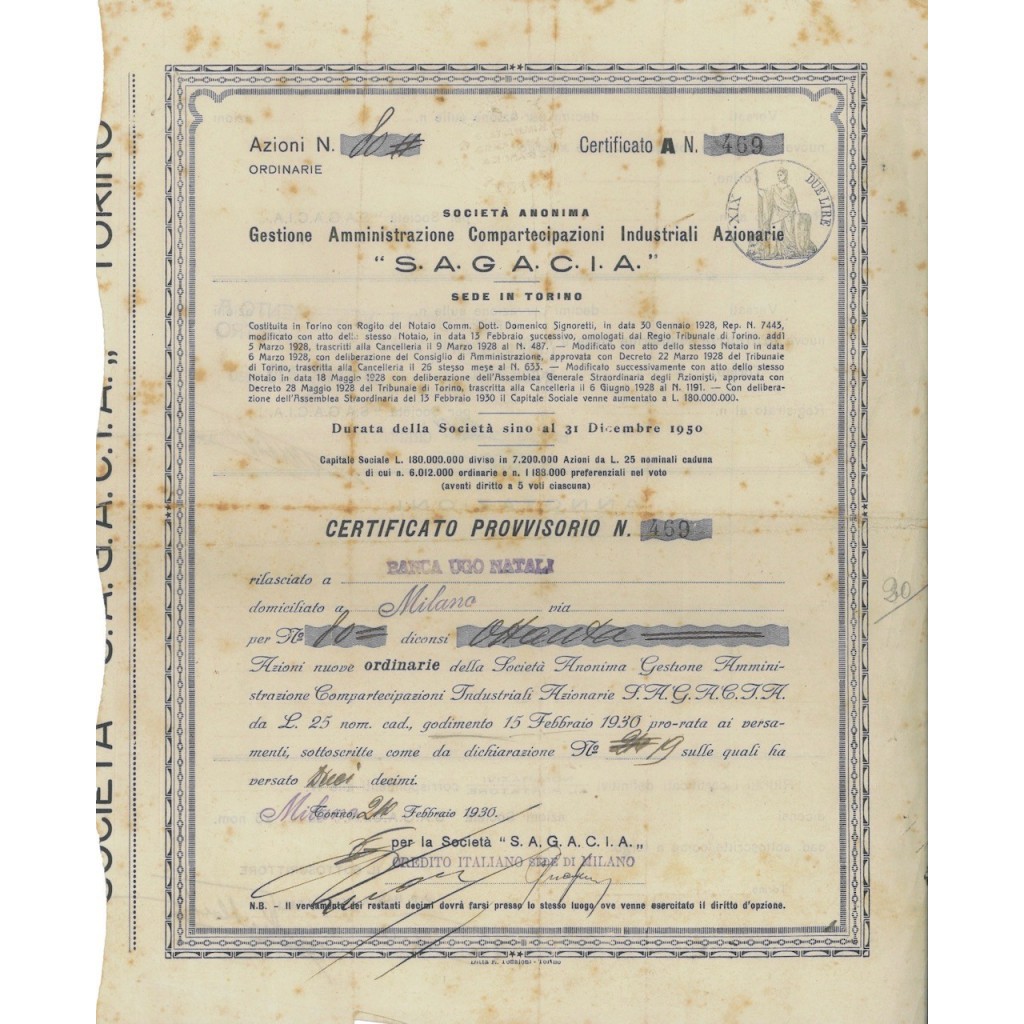 SOCIETÀ "S. A. G. A. C. I. A. „ TORINO
Azioni N. 80 Certificato A N. 469
ORDINARIE
XIX DUE LIRE
SOCIETÀ ANONIMA
Gestione Amministrazione Compartecipazioni Industriali Azionarie
“S. A. G. A. C. I. A.”
SEDE IN TORINO
Costituita in Torino con Rogito del Notaio Comm. Dott. Domenico Signoretti, in data 30 Gennaio 1928, Rep. N. 7443,
modificato con atto dello stesso Notaio, in data 13 Febbraio successivo, omologati dal Regio Tribunale di Torino. addì
5 Marzo 1928, trascritti alla Cancelleria il 9 Marzo 1928 al N. 487. — Modificato con atto dello stesso Notaio in data
6 Marzo 1928, con deliberazione del Consiglio di Amministrazione, approvata con Decreto 22 Marzo 1928 del Tribunale
di Torino, trascritta alla Cancelleria il 26 stesso mese al N. 633. — Modificato successivamente con atto dello stesso
Notaio in data 18 Maggio 1928 con deliberazione dell'Assemblea Generale Straordinaria degli Azionisti, approvata con
Decreto 28 Maggio 1928 del Tribunale di Torino, trascritta alla Cancelleria il 6 Giugno 1928 al N. 1191. — Con delibera-
zione dell'Assemblea Straordinaria del 13 Febbraio 1930 il Capitale Sociale venne aumentato a L. 180.000.000.
Durata della Società sino al 31 Dicembre 1950
Capitale Sociale L. 180.000.000 diviso in 7.200.000 Azioni da L. 25 nominali caduna
di cui n. 6.012.000 ordinarie e n. 1.188.000 preferenziali nel voto
(aventi diritto a 5 voti ciascuna)
CERTIFICATO PROVVISORIO N. 469
rilasciato a BANCA UGO NATALI
domiciliato a Milano via
per Nº 80= diconsi Ottanta
Azioni nuove ordinarie della Società Anonima Gestione Ammini-
strazione Compartecipazioni Industriali Azionarie S.A.G.A.C.I.A.
da L. 25 nom. cad., godimento 15 Febbraio 1930 pro-rata ai versa-
menti, sottoscritte come da dichiarazione Nº 9 sulle quali ha
versato Dieci decimi.
Milano Torino, Febbraio 1930.
per la Società “S. A. G. A. C. I. A. „
CREDITO ITALIANO SEDE DI MILANO
N.B. - Il versamento dei restanti decimi dovrà farsi presso lo stesso luogo ove venne esercitato il diritto d'opzione.
30/